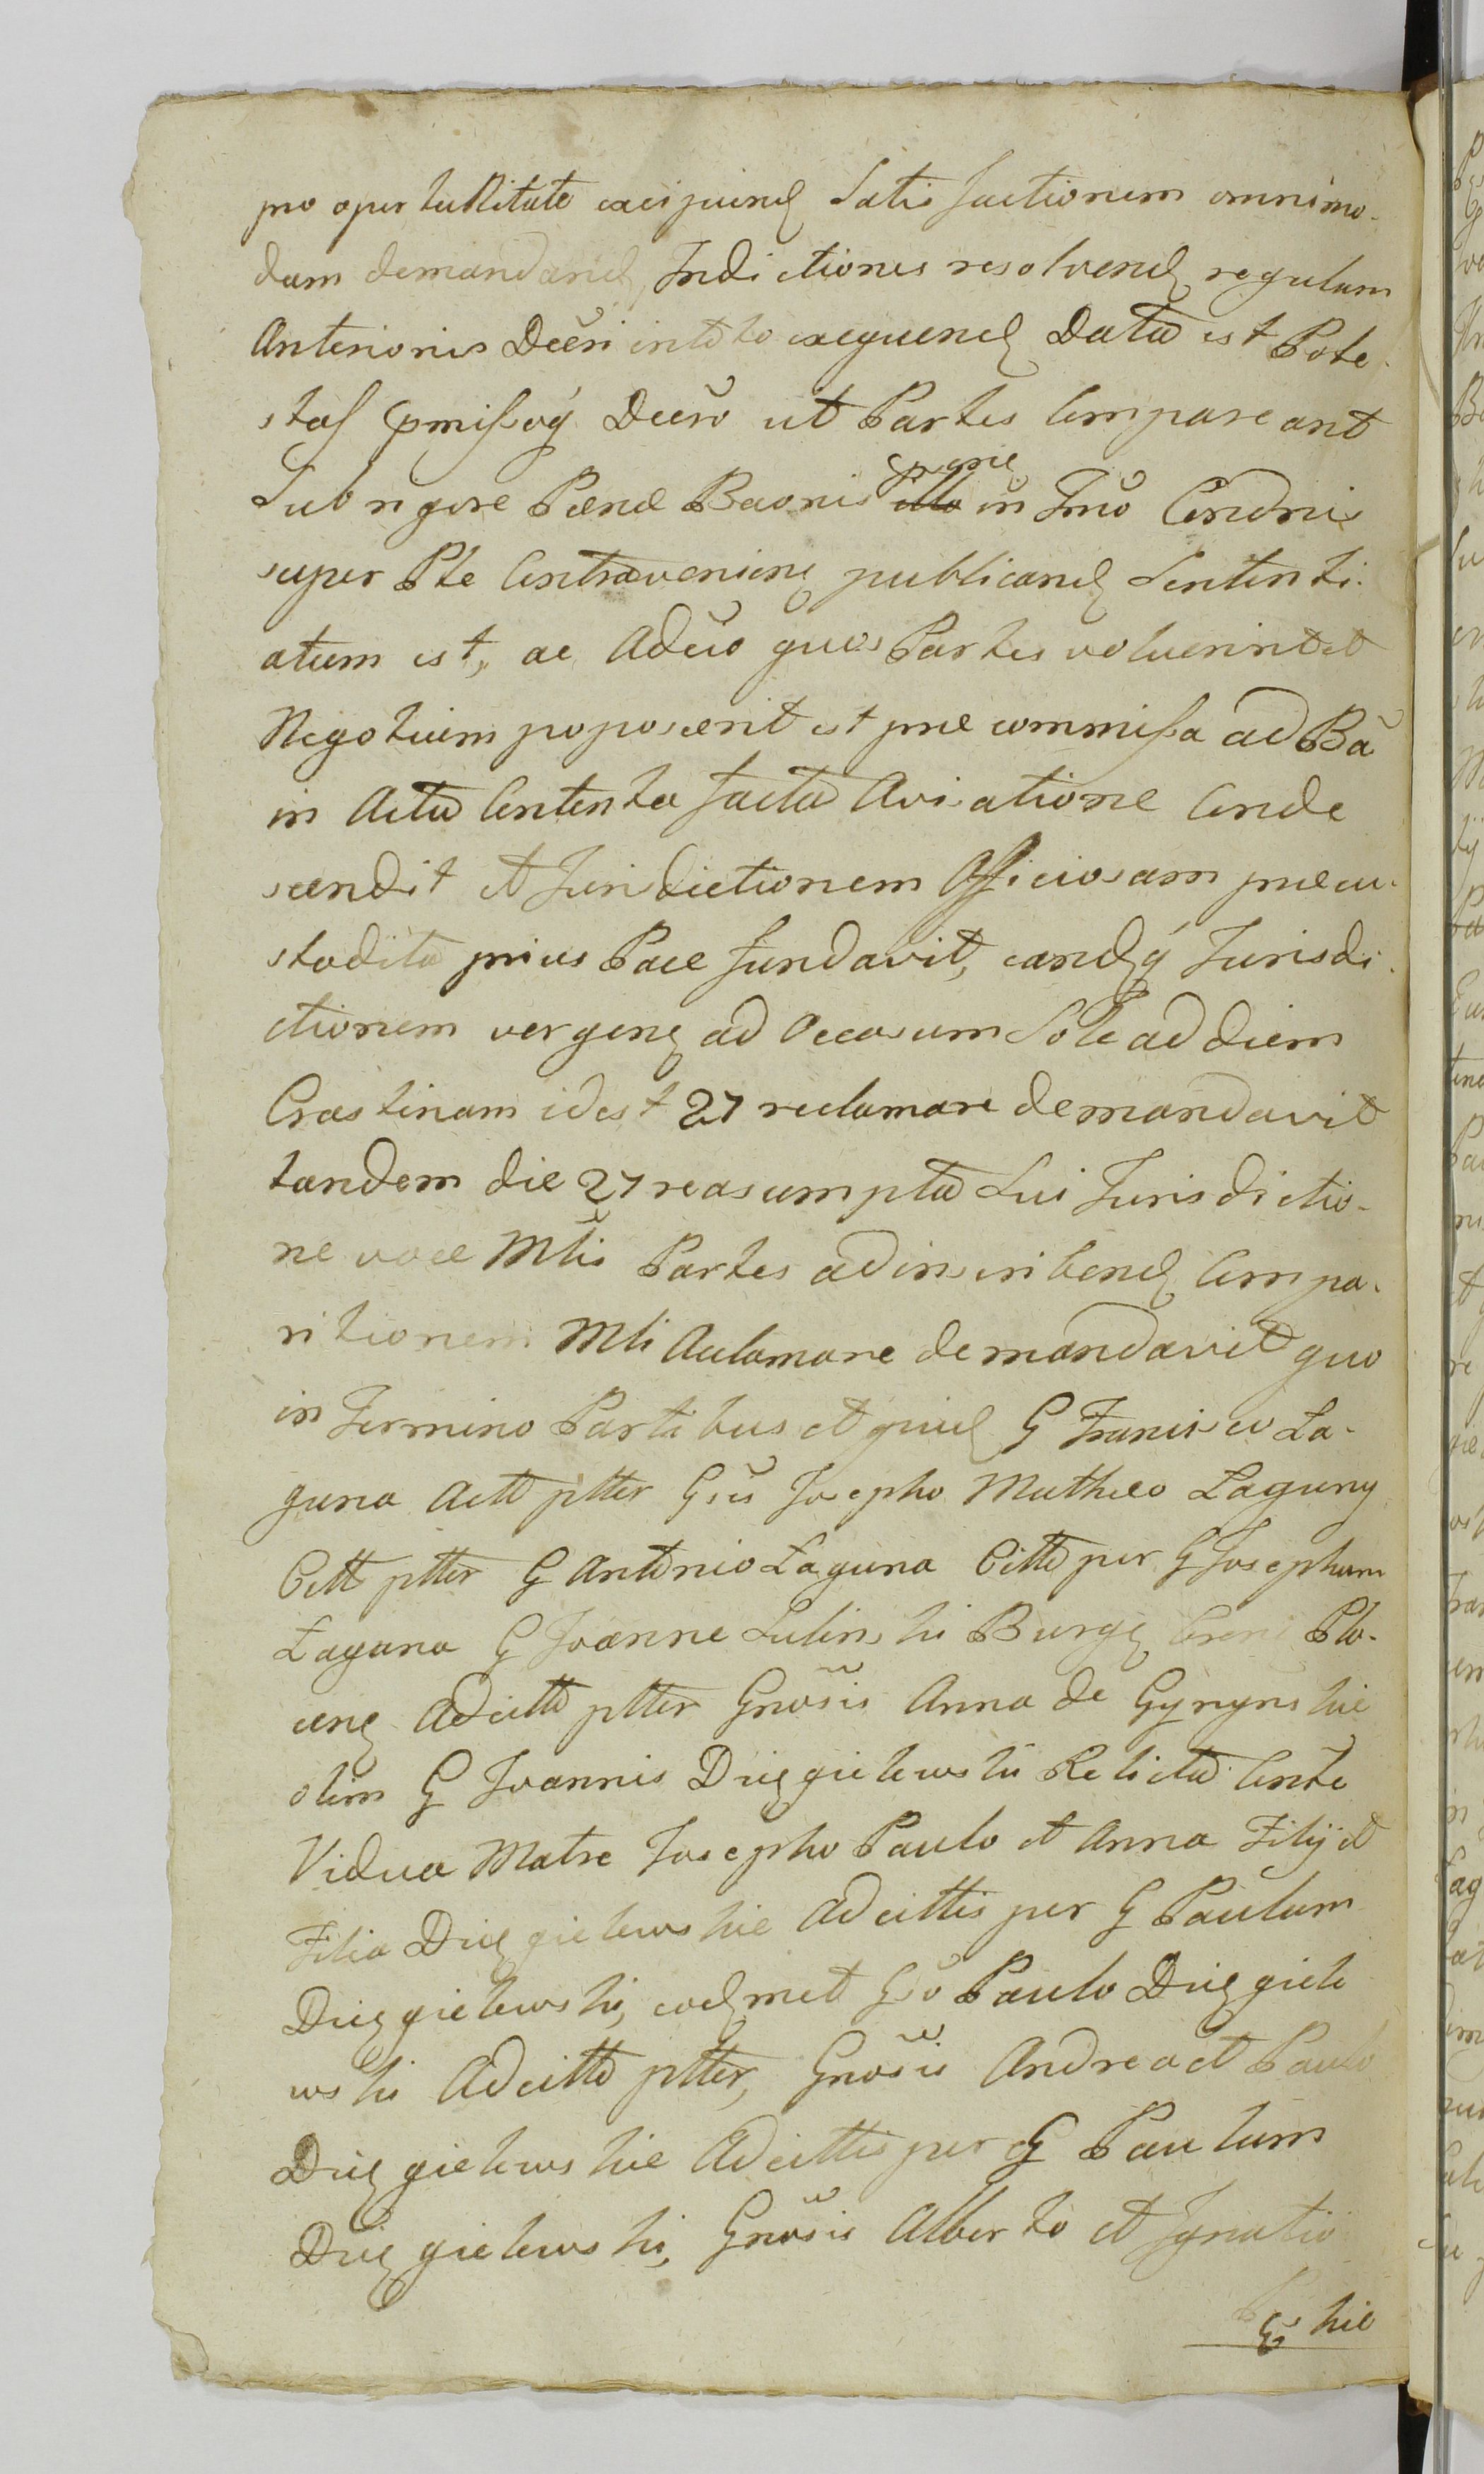 pro opportunitate excipiend Satisfactionem omnimo-
dam demandand, Indictiones resolvend regulam
Anterioris Decri in toto exequend Data est Pote-
stas pmissoq Decro ut Partes Compareant
Sub rigore Pœnæ Baonis in Tmo Condnis
super Pte Contravenien publicand Sententi-
atum est, ac Adeo quos Partes voluerint et
Negotium poposcerit est præcommissa ad Ba
in Actu Contenta facta Avisatione Conde
scendit et Jurisdictionem Officiosam præcu-
stodita prius Pace fundavit, eandq Jurisdi-
ctionem vergen ad Occasum Sole ad diem
Crastinam idest 27 reclamare demandavit
tandem die 27 reasumpta Sui Jurisdictio-
ne voce Mlis Partes ad inscribend Compa-
ritionem Mli Aclamare demandavit quo
in Termino Partibus et quid G Francisco La-
guna Actt ptter Gsis Josepho Matheo Laguny
Citt ptter G Antonio Laguna Citto per G Josephum
Laguna G Joanne Lulinski Burg Cren Plo-
cen Adcitto ptter Gnosis Anna de Gynynskie
olim G Joannis Dzięgielewski Relicta Cnte
Vidua Matre Josepho Paulo et Anna Filij et
Filia Dzięgielewskie Adcittis per G Paulum
Dzięgielewski, eodmet Gso Paulo Dzięgiele
wski Adcitto ptter, Gnosis Andrea et Paulo
Dzięgielewskie Adcittis per G Paulum
Dzięgielewski, Gnosis Alberto et Ignatio
skie